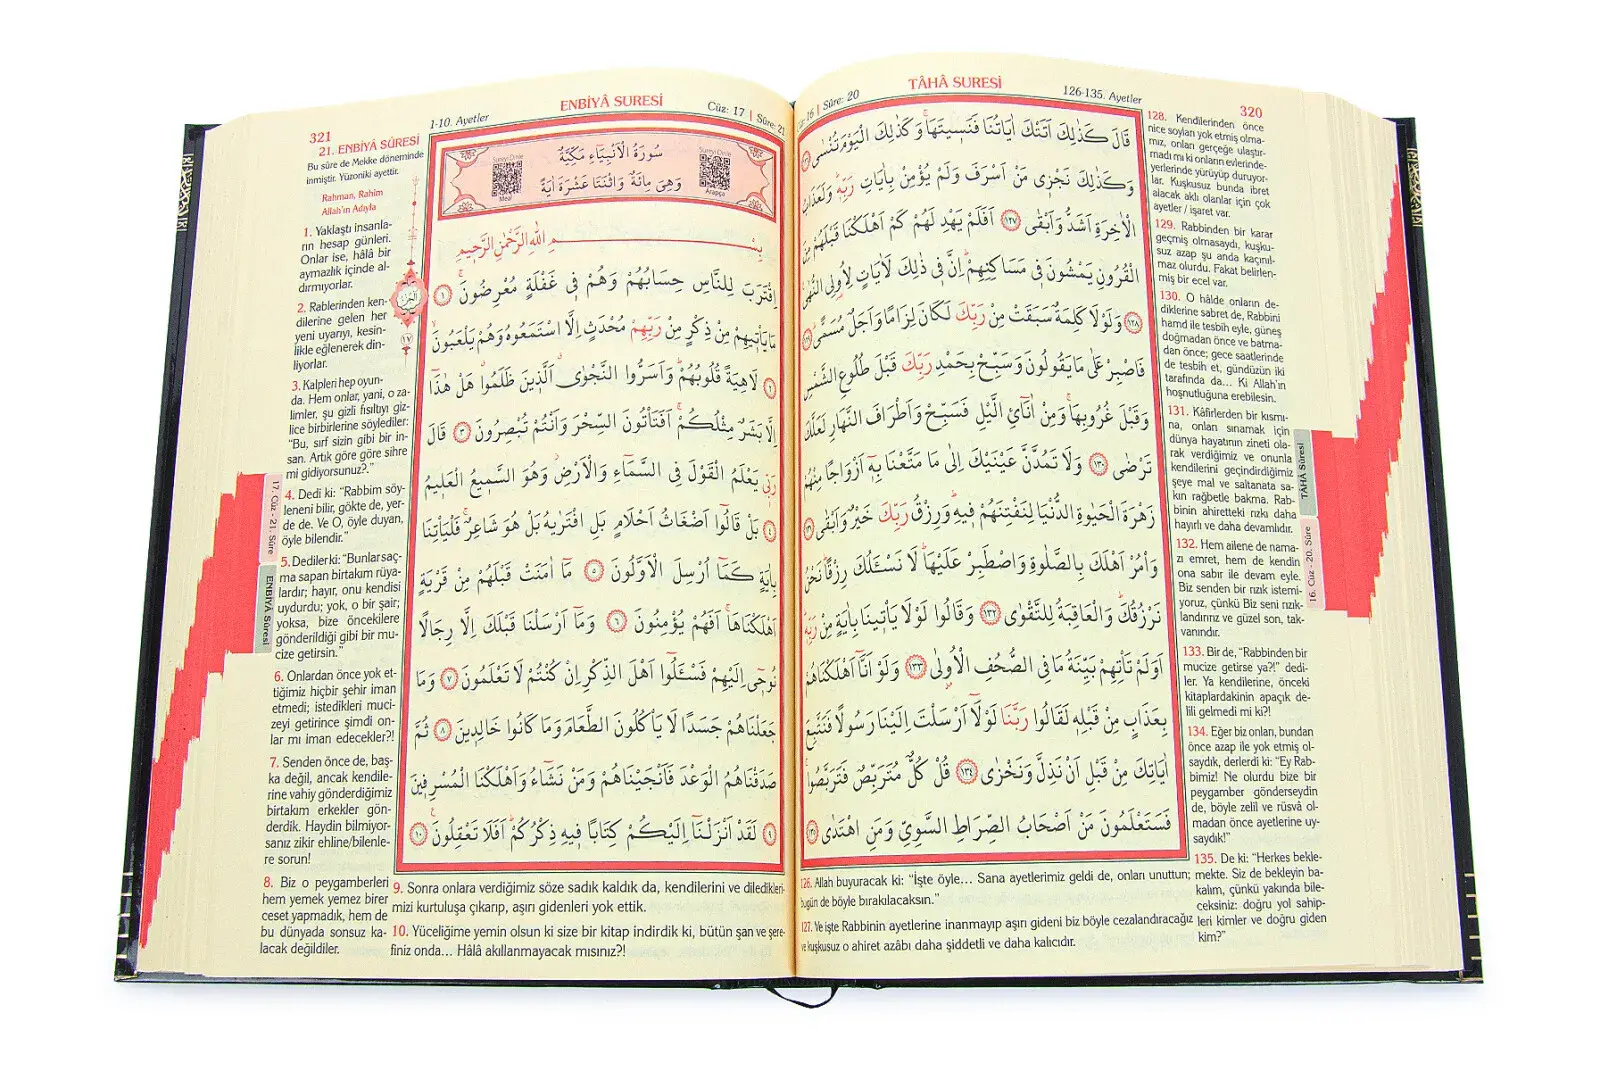 TÂHÂ SURESİ
Sûre: 20
126-135. Ayetler
320
قَالَ كَذٰلِكَ اَتَتْكَ اٰيَاتُنَا فَنَسِيتَهَاۚ وَكَذٰلِكَ الْيَوْمَ تُنْسٰى
وَكَذٰلِكَ نَجْزٖى مَنْ اَسْرَفَ وَلَمْ يُؤْمِنْ بِاٰيَاتِ رَبِّهٖۜ وَلَعَذَابُ
الْاٰخِرَةِ اَشَدُّ وَاَبْقٰى ﴿١٢٧﴾ اَفَلَمْ يَهْدِ لَهُمْ كَمْ اَهْلَكْنَا قَبْلَهُمْ مِنَ
الْقُرُونِ يَمْشُونَ فٖى مَسَاكِنِهِمْۜ اِنَّ فٖى ذٰلِكَ لَاٰيَاتٍ لِاُو۬لِى النُّهٰى
﴿١٢٨﴾ وَلَوْلَا كَلِمَةٌ سَبَقَتْ مِنْ رَبِّكَ لَكَانَ لِزَامًا وَاَجَلٌ مُسَمًّىۜ ﴿١٢٩﴾
فَاصْبِرْ عَلٰى مَا يَقُولُونَ وَسَبِّحْ بِحَمْدِ رَبِّكَ قَبْلَ طُلُوعِ الشَّمْسِ
وَقَبْلَ غُرُوبِهَاۚ وَمِنْ اٰنَآئِ الَّيْلِ فَسَبِّحْ وَاَطْرَافَ النَّهَارِ لَعَلَّكَ
تَرْضٰى ﴿١٣٠﴾ وَلَا تَمُدَّنَّ عَيْنَيْكَ اِلٰى مَا مَتَّعْنَا بِهٖٓ اَزْوَاجًا مِنْهُمْ
زَهْرَةَ الْحَيٰوةِ الدُّنْيَا لِنَفْتِنَهُمْ فٖيهِۜ وَرِزْقُ رَبِّكَ خَيْرٌ وَاَبْقٰى ﴿١٣١﴾
وَأْمُرْ اَهْلَكَ بِالصَّلٰوةِ وَاصْطَبِرْ عَلَيْهَاۜ لَا نَسْـَٔلُكَ رِزْقًاۜ نَحْنُ
نَرْزُقُكَۜ وَالْعَاقِبَةُ لِلتَّقْوٰى ﴿١٣٢﴾ وَقَالُوا لَوْلَا يَأْتٖينَا بِاٰيَةٍ مِنْ رَبِّهٖۜ
اَوَلَمْ تَأْتِهِمْ بَيِّنَةُ مَا فِى الصُّحُفِ الْاُولٰى ﴿١٣٣﴾ وَلَوْ اَنَّٓا اَهْلَكْنَاهُمْ
بِعَذَابٍ مِنْ قَبْلِهٖ لَقَالُوا رَبَّنَا لَوْلَٓا اَرْسَلْتَ اِلَيْنَا رَسُولًا فَنَتَّبِعَ
اٰيَاتِكَ مِنْ قَبْلِ اَنْ نَذِلَّ وَنَخْزٰى ﴿١٣٤﴾ قُلْ كُلٌّ مُتَرَبِّصٌ فَتَرَبَّصُواۚ
فَسَتَعْلَمُونَ مَنْ اَصْحَابُ الصِّرَاطِ السَّوِىِّ وَمَنِ اهْتَدٰى ﴿١٣٥﴾
126. Allah buyuracak ki: “İşte öyle... Sana ayetlerimiz geldi de, onları unuttun;
bugün de böyle bırakılacaksın.”
127. Ve işte Rabbinin ayetlerine inanmayıp aşırı gideni biz böyle cezalandıracağız
ve kuşkusuz o ahiret azâbı daha şiddetli ve daha kalıcıdır.
128. Kendilerinden önce
nice soyları yok etmiş olma-
mız, onları gerçeğe ulaştır-
madı mı ki onların evlerinde-
yerlerinde yürüyüp duruyor-
lar. Kuşkusuz bunda ibret
alacak aklı olanlar için çok
ayetler / işaret var.
129. Rabbinden bir karar
geçmiş olmasaydı, kuşku-
suz azap şu anda kaçınıl-
maz olurdu. Fakat belirlen-
miş bir ecel var.
130. O hâlde onların de-
diklerine sabret de, Rabbini
hamd ile tesbih eyle, güneş
doğmadan önce ve batma-
dan önce; gece saatlerinde
de tesbih et, gündüzün iki
tarafında da... Ki Allah’ın
hoşnutluğuna erebilesin.
131. Kâfirlerden bir kısmı-
na, onları sınamak için
dünya hayatının zineti ola-
rak verdiğimiz ve onunla
kendilerini geçindirdiğimiz
şeye mal ve saltanata sa-
kın rağbetle bakma. Rab-
binin ahiretteki rızkı daha
hayırlı ve daha devamlıdır.
132. Hem ailene de nama-
zı emret, hem de kendin
ona sabır ile devam eyle.
Biz senden bir rızık istemi-
yoruz, çünkü Biz seni rızık-
landırırız ve güzel son, tak-
vanındır.
133. Bir de, “Rabbinden bir
mucize getirse ya?!” dedi-
ler. Ya kendilerine, önceki
kitaplardakinin apaçık de-
lili gelmedi mi ki?!
134. Eğer biz onları, bundan
önce azap ile yok etmiş ol-
saydık, derlerdi ki: “Ey Rab-
bimiz! Ne olurdu bize bir
peygamber gönderseydin
de, böyle zelîl ve rüsvâ ol-
madan önce ayetlerine uy-
saydık!”
135. De ki: “Herkes bekle-
mekte. Siz de bekleyin ba-
kalım, çünkü yakında bile-
ceksiniz: doğru yol sahip-
leri kimler ve doğru giden
kim?”
TÂHÂ Sûresi
16. Cüz - 20. Sûre
321
1-10. Ayetler
ENBİYÂ SURESİ
Cüz: 17 | Sûre: 21
21. ENBİYÂ SÛRESİ
Bu sûre de Mekke döneminde
inmiştir. Yüzoniki ayettir.
Rahman, Rahim
Allah’ın Adıyla
1. Yaklaştı insanla-
rın hesap günleri.
Onlar ise, hâlâ bir
aymazlık içinde al-
dırmıyorlar.
2. Rablerinden ken-
dilerine gelen her
yeni uyarıyı, kesin-
likle eğlenerek din-
liyorlar.
3. Kalpleri hep oyun-
da. Hem onlar, yani, o za-
limler, şu gizli fısıltıyı giz-
lice birbirlerine söylediler:
“Bu, sırf sizin gibi bir in-
san. Artık göre göre sihre
mi gidiyorsunuz?.”
4. Dedi ki: “Rabbim söy-
leneni bilir, gökte de, yer-
de de. Ve O, öyle duyan,
öyle bilendir.”
5. Dediler ki: “Bunlar saç-
ma sapan birtakım rüya-
lardır; hayır, onu kendisi
uydurdu; yok, o bir şair;
yoksa, bize öncekilere
gönderildiği gibi bir mu-
cize getirsin.”
6. Onlardan önce yok et-
tiğimiz hiçbir şehir iman
etmedi; istedikleri muci-
zeyi getirince şimdi on-
lar mı iman edecekler?!
7. Senden önce de, baş-
ka değil, ancak kendile-
rine vahiy gönderdiğimiz
birtakım erkekler gön-
derdik. Haydin bilmiyor-
sanız zikir ehline/bilenle-
re sorun!
8. Biz o peygamberleri
hem yemek yemez birer
ceset yapmadık, hem de
bu dünyada sonsuz ka-
lacak değildiler.
سُورَةُ الْاَنْبِيَٓاءِ مَكِّيَّةٌ
وَهِىَ مِائَةٌ وَاثْنَتَا عَشْرَةَ اٰيَةً
Sureyi Dinle
Meal
Sureyi Dinle
Arapça
بِسْمِ اللّٰهِ الرَّحْمٰنِ الرَّحٖيمِ
اِقْتَرَبَ لِلنَّاسِ حِسَابُهُمْ وَهُمْ فٖى غَفْلَةٍ مُعْرِضُونَۚ ﴿١﴾
مَا يَأْتٖيهِمْ مِنْ ذِكْرٍ مِنْ رَبِّهِمْ مُحْدَثٍ اِلَّا اسْتَمَعُوهُ وَهُمْ يَلْعَبُونَۙ
﴿٢﴾ لَاهِيَةً قُلُوبُهُمْۜ وَاَسَرُّوا النَّجْوٰىۗ اَلَّذٖينَ ظَلَمُواۗ هَلْ هٰذَٓا
اِلَّا بَشَرٌ مِثْلُكُمْۚ اَفَتَأْتُونَ السِّحْرَ وَاَنْتُمْ تُبْصِرُونَ ﴿٣﴾ قَالَ
رَبّٖى يَعْلَمُ الْقَوْلَ فِى السَّمَٓاءِ وَالْاَرْضِۘ وَهُوَ السَّمٖيعُ الْعَلٖيمُ
﴿٤﴾ بَلْ قَالُٓوا اَضْغَاثُ اَحْلَامٍ بَلِ افْتَرٰيهُ بَلْ هُوَ شَاعِرٌۚ فَلْيَأْتِنَا
بِاٰيَةٍ كَمَٓا اُرْسِلَ الْاَوَّلُونَ ﴿٥﴾ مَٓا اٰمَنَتْ قَبْلَهُمْ مِنْ قَرْيَةٍ
اَهْلَكْنَاهَاۚ اَفَهُمْ يُؤْمِنُونَ ﴿٦﴾ وَمَٓا اَرْسَلْنَا قَبْلَكَ اِلَّا رِجَالًا
نُوحٖٓى اِلَيْهِمْ فَسْـَٔلُٓوا اَهْلَ الذِّكْرِ اِنْ كُنْتُمْ لَا تَعْلَمُونَ ﴿٧﴾ وَمَا
جَعَلْنَاهُمْ جَسَدًا لَا يَأْكُلُونَ الطَّعَامَ وَمَا كَانُوا خَالِدٖينَ ﴿٨﴾ ثُمَّ
صَدَقْنَاهُمُ الْوَعْدَ فَاَنْجَيْنَاهُمْ وَمَنْ نَشَٓاءُ وَاَهْلَكْنَا الْمُسْرِفٖينَ
﴿٩﴾ لَقَدْ اَنْزَلْنَٓا اِلَيْكُمْ كِتَابًا فٖيهِ ذِكْرُكُمْۜ اَفَلَا تَعْقِلُونَ۟ ﴿١٠﴾
9. Sonra onlara verdiğimiz söze sadık kaldık da, kendilerini ve diledikleri-
mizi kurtuluşa çıkarıp, aşırı gidenleri yok ettik.
10. Yüceliğime yemin olsun ki size bir kitap indirdik ki, bütün şan ve şere-
finiz onda... Hâlâ akıllanmayacak mısınız?!
17. Cüz - 21. Sûre
ENBİYÂ Sûresi